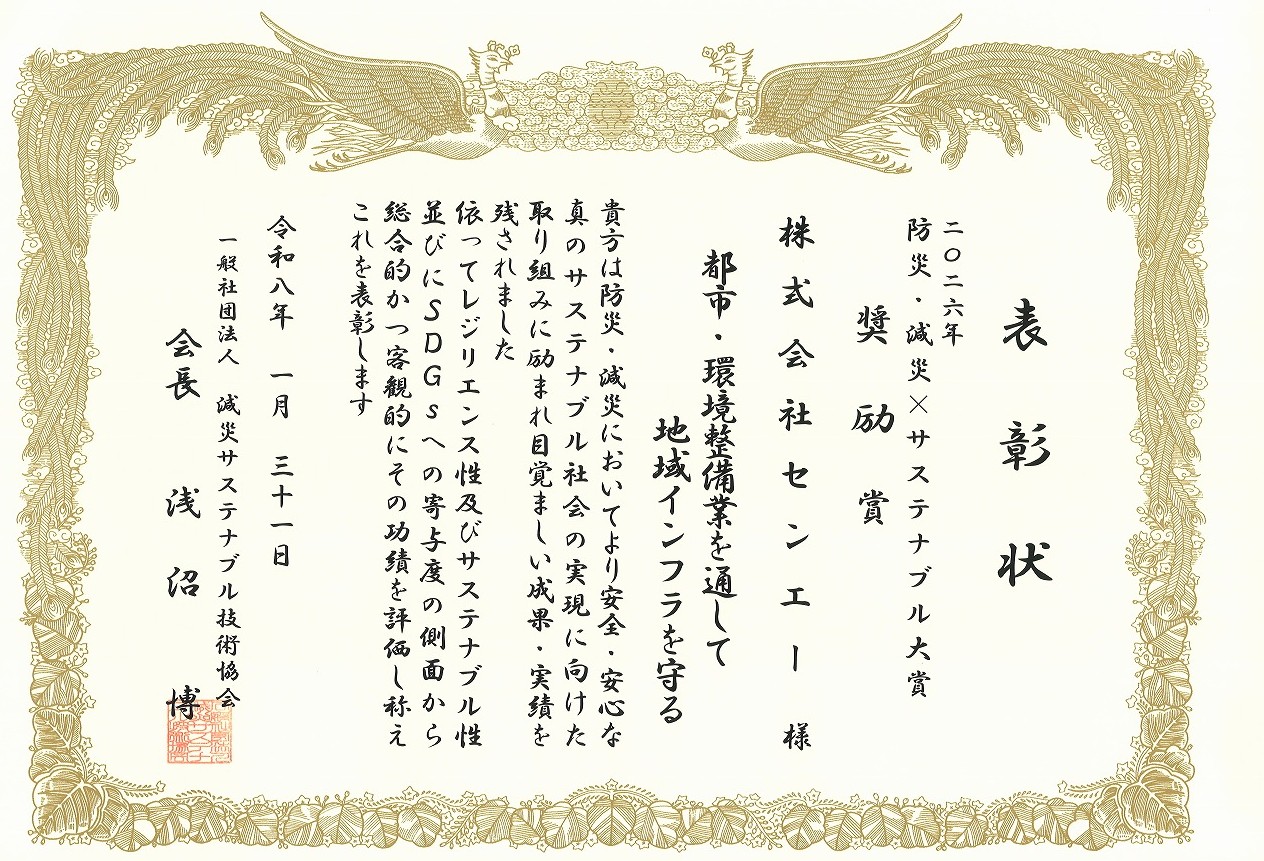 表彰状
二〇二六年
防災・減災×サステナブル大賞
奨励賞
株式会社センエー 様
都市・環境整備業を通して
地域インフラを守る
貴方は防災・減災においてより安全・安心な
真のサステナブル社会の実現に向けた
取り組みに励まれ目覚ましい成果・実績を
残されました
依ってレジリエンス性及びサステナブル性
並びにSDGsへの寄与度の側面から
総合的かつ客観的にその功績を評価し称え
これを表彰します
令和八年 一月 三十一日
一般社団法人 減災サステナブル技術協会
会長 浅沼 博